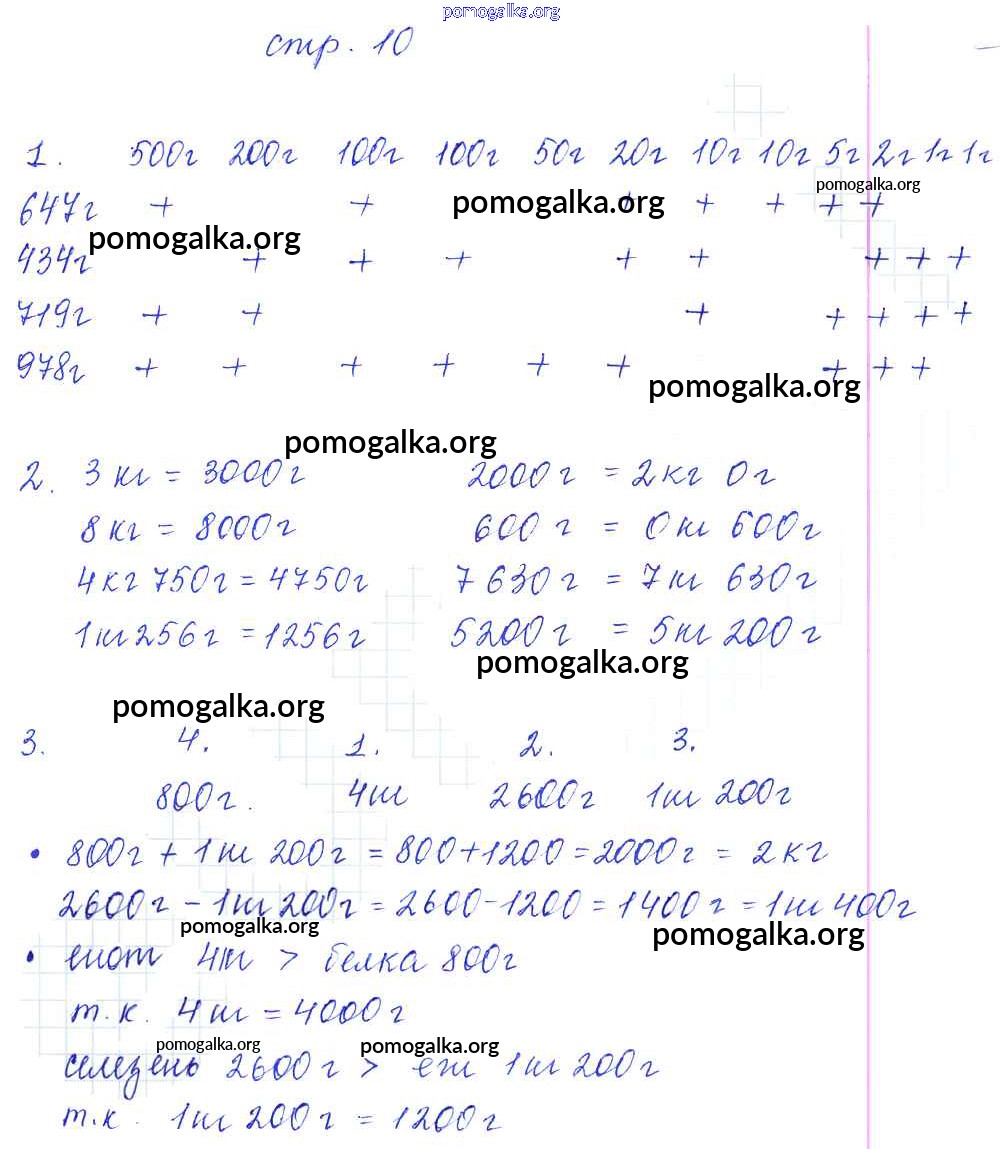 pomogalka.org
стр. 10
1. 500г 200г 100г 100г 50г 20г 10г 10г 5г 2г 1г 1г
pomogalka.org
647г + + pomogalka.org + + + + +
pomogalka.org
434г + + + + + + + +
719г + + + + + + +
978г + + + + + + + + +
pomogalka.org
pomogalka.org
2. 3 кг = 3000г 2000г = 2кг 0г
8 кг = 8000г 600г = 0кг 600г
4кг 750г = 4750г 7630г = 7кг 630г
1кг 256г = 1256г 5200г = 5кг 200г
pomogalka.org
pomogalka.org
3. 4. 1. 2. 3.
800г. 4кг 2600г 1кг 200г
• 800г + 1кг 200г = 800+1200 = 2000г = 2кг
2600г - 1кг 200г = 2600-1200 = 1400г = 1кг 400г
pomogalka.org pomogalka.org
• енот 4кг > белка 800г
т.к. 4кг = 4000г
pomogalka.org pomogalka.org
селезень 2600г > еж 1кг 200г
т.к. 1кг 200г = 1200г